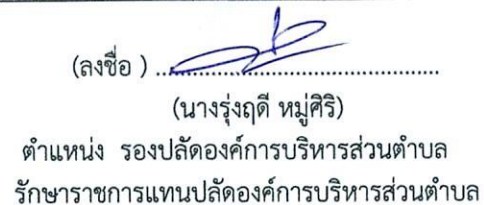 (ลงชื่อ ) ................................................
(นางรุ่งฤดี หมู่ศิริ)
ตำแหน่ง รองปลัดองค์การบริหารส่วนตำบล
รักษาราชการแทนปลัดองค์การบริหารส่วนตำบล